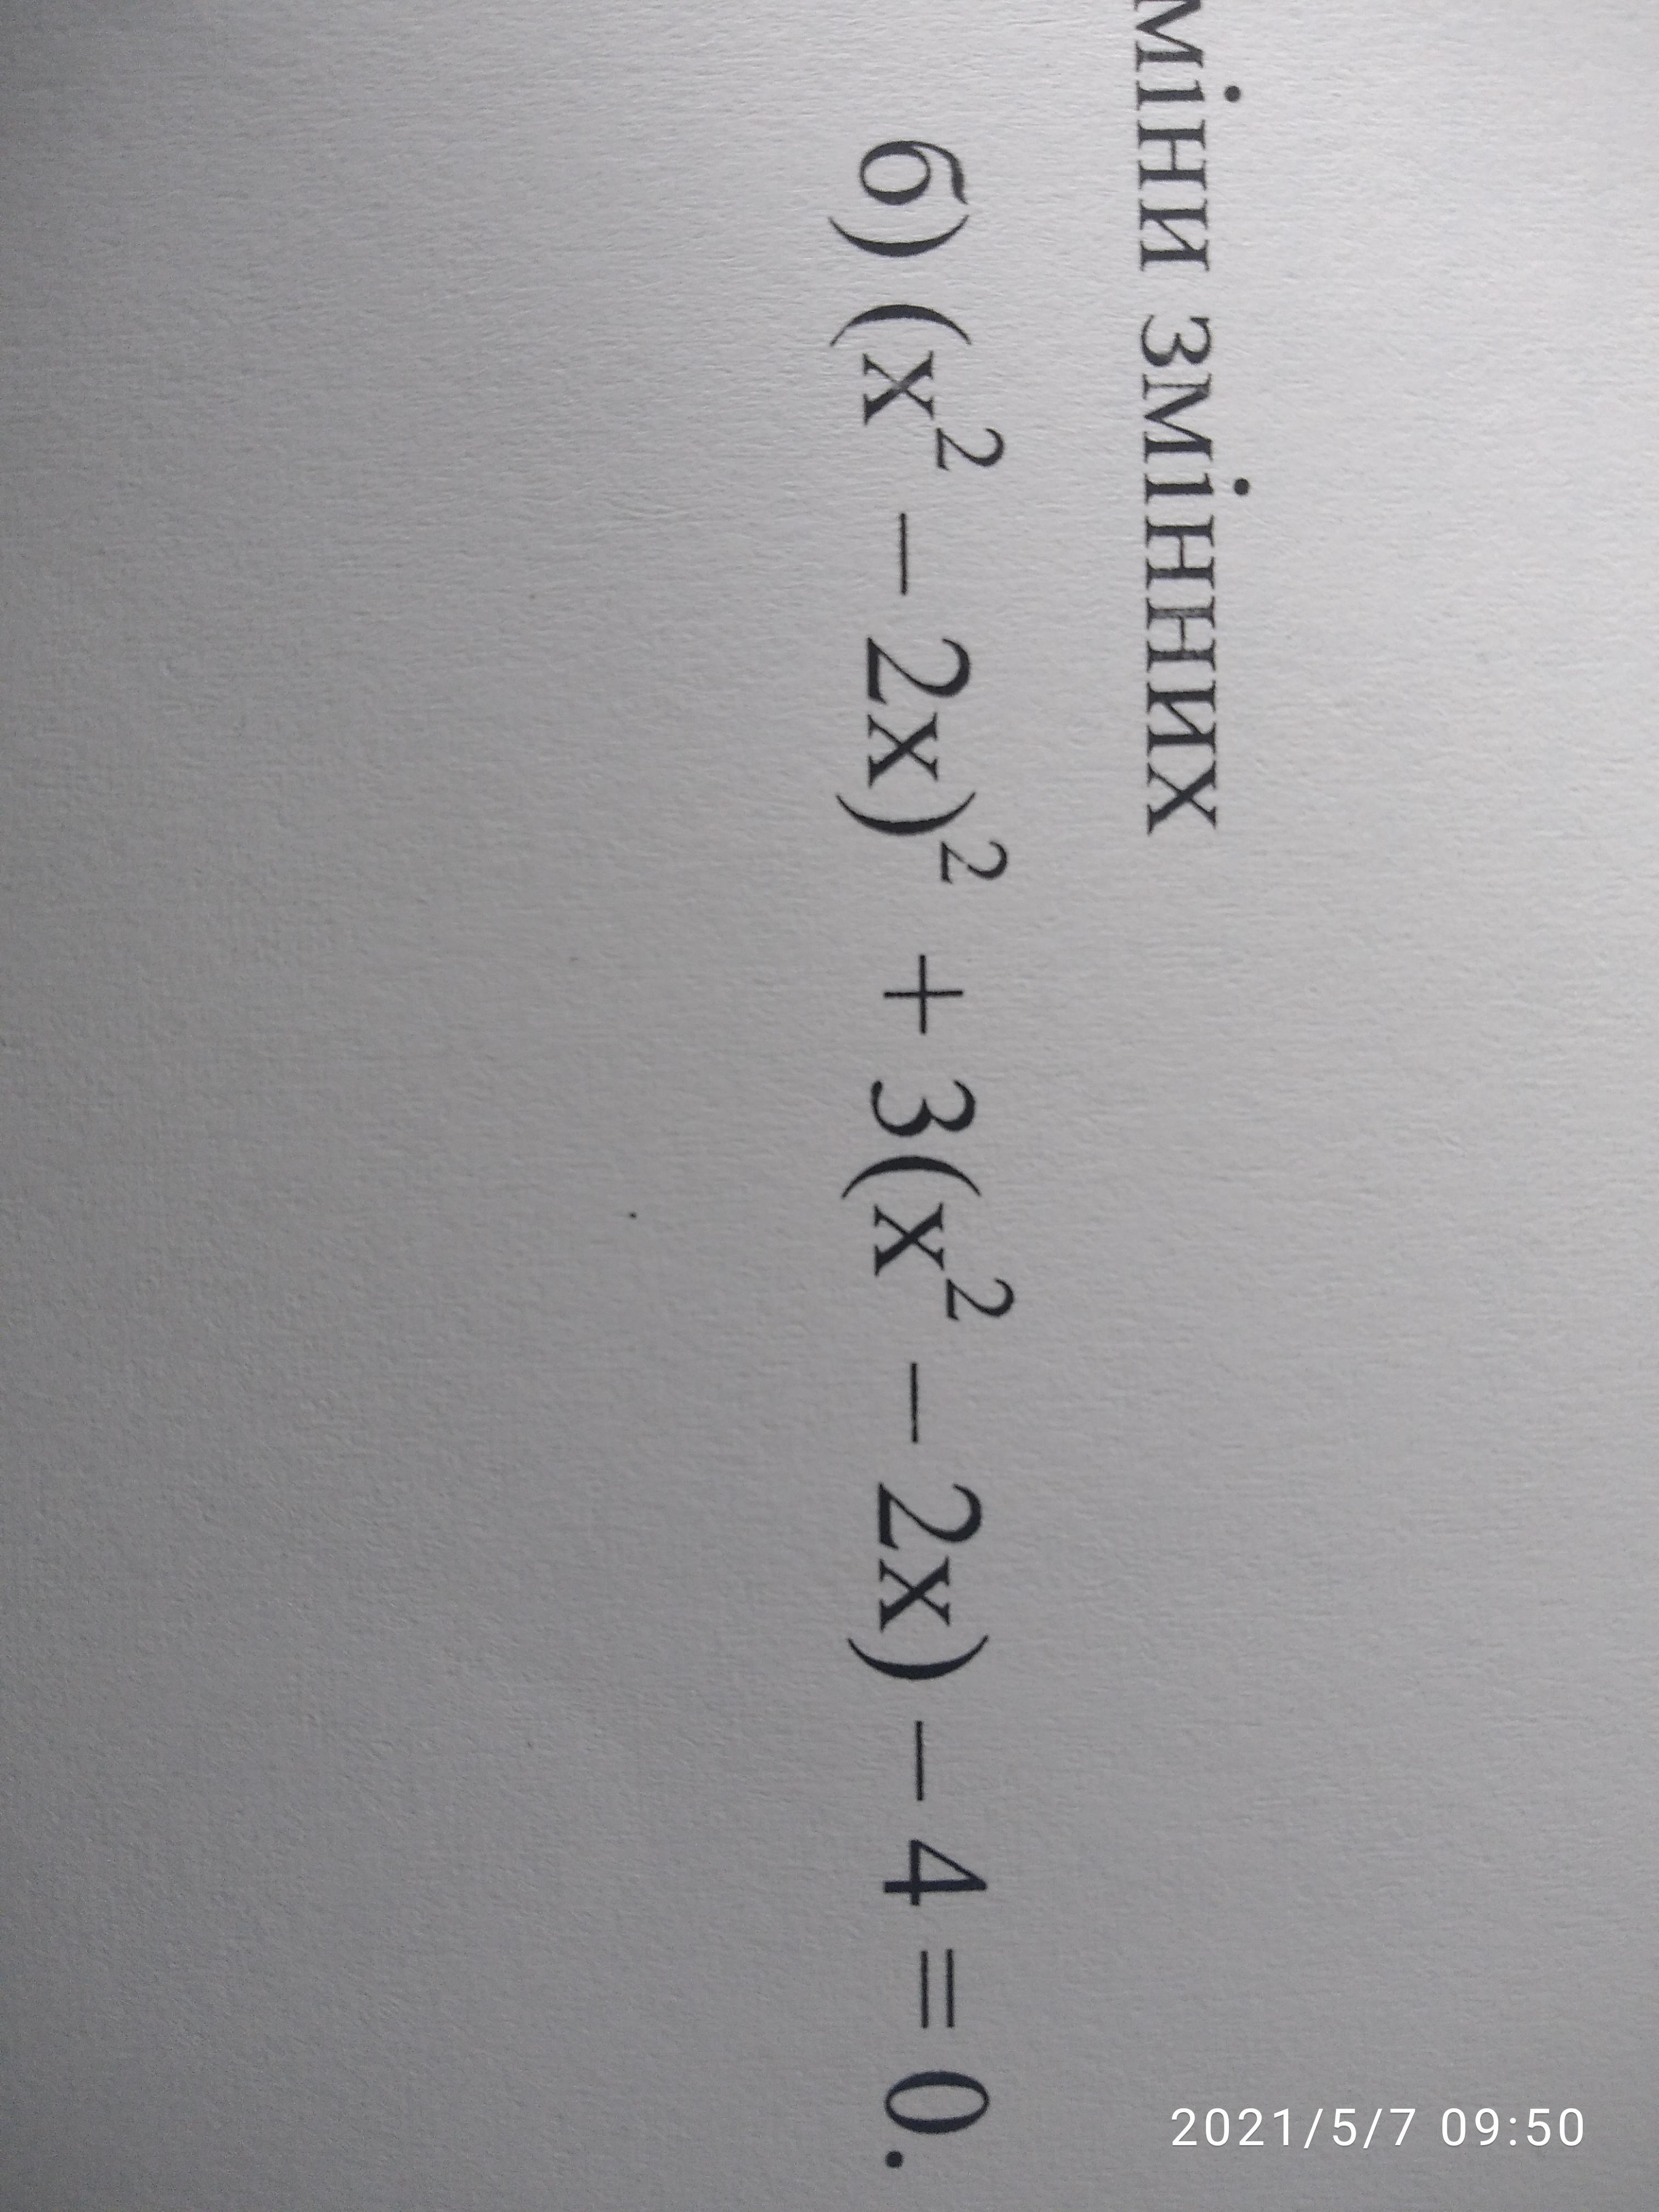 міни змінних
6) (x² − 2x)² + 3(x² − 2x) − 4 = 0.
2021/5/7 09:50